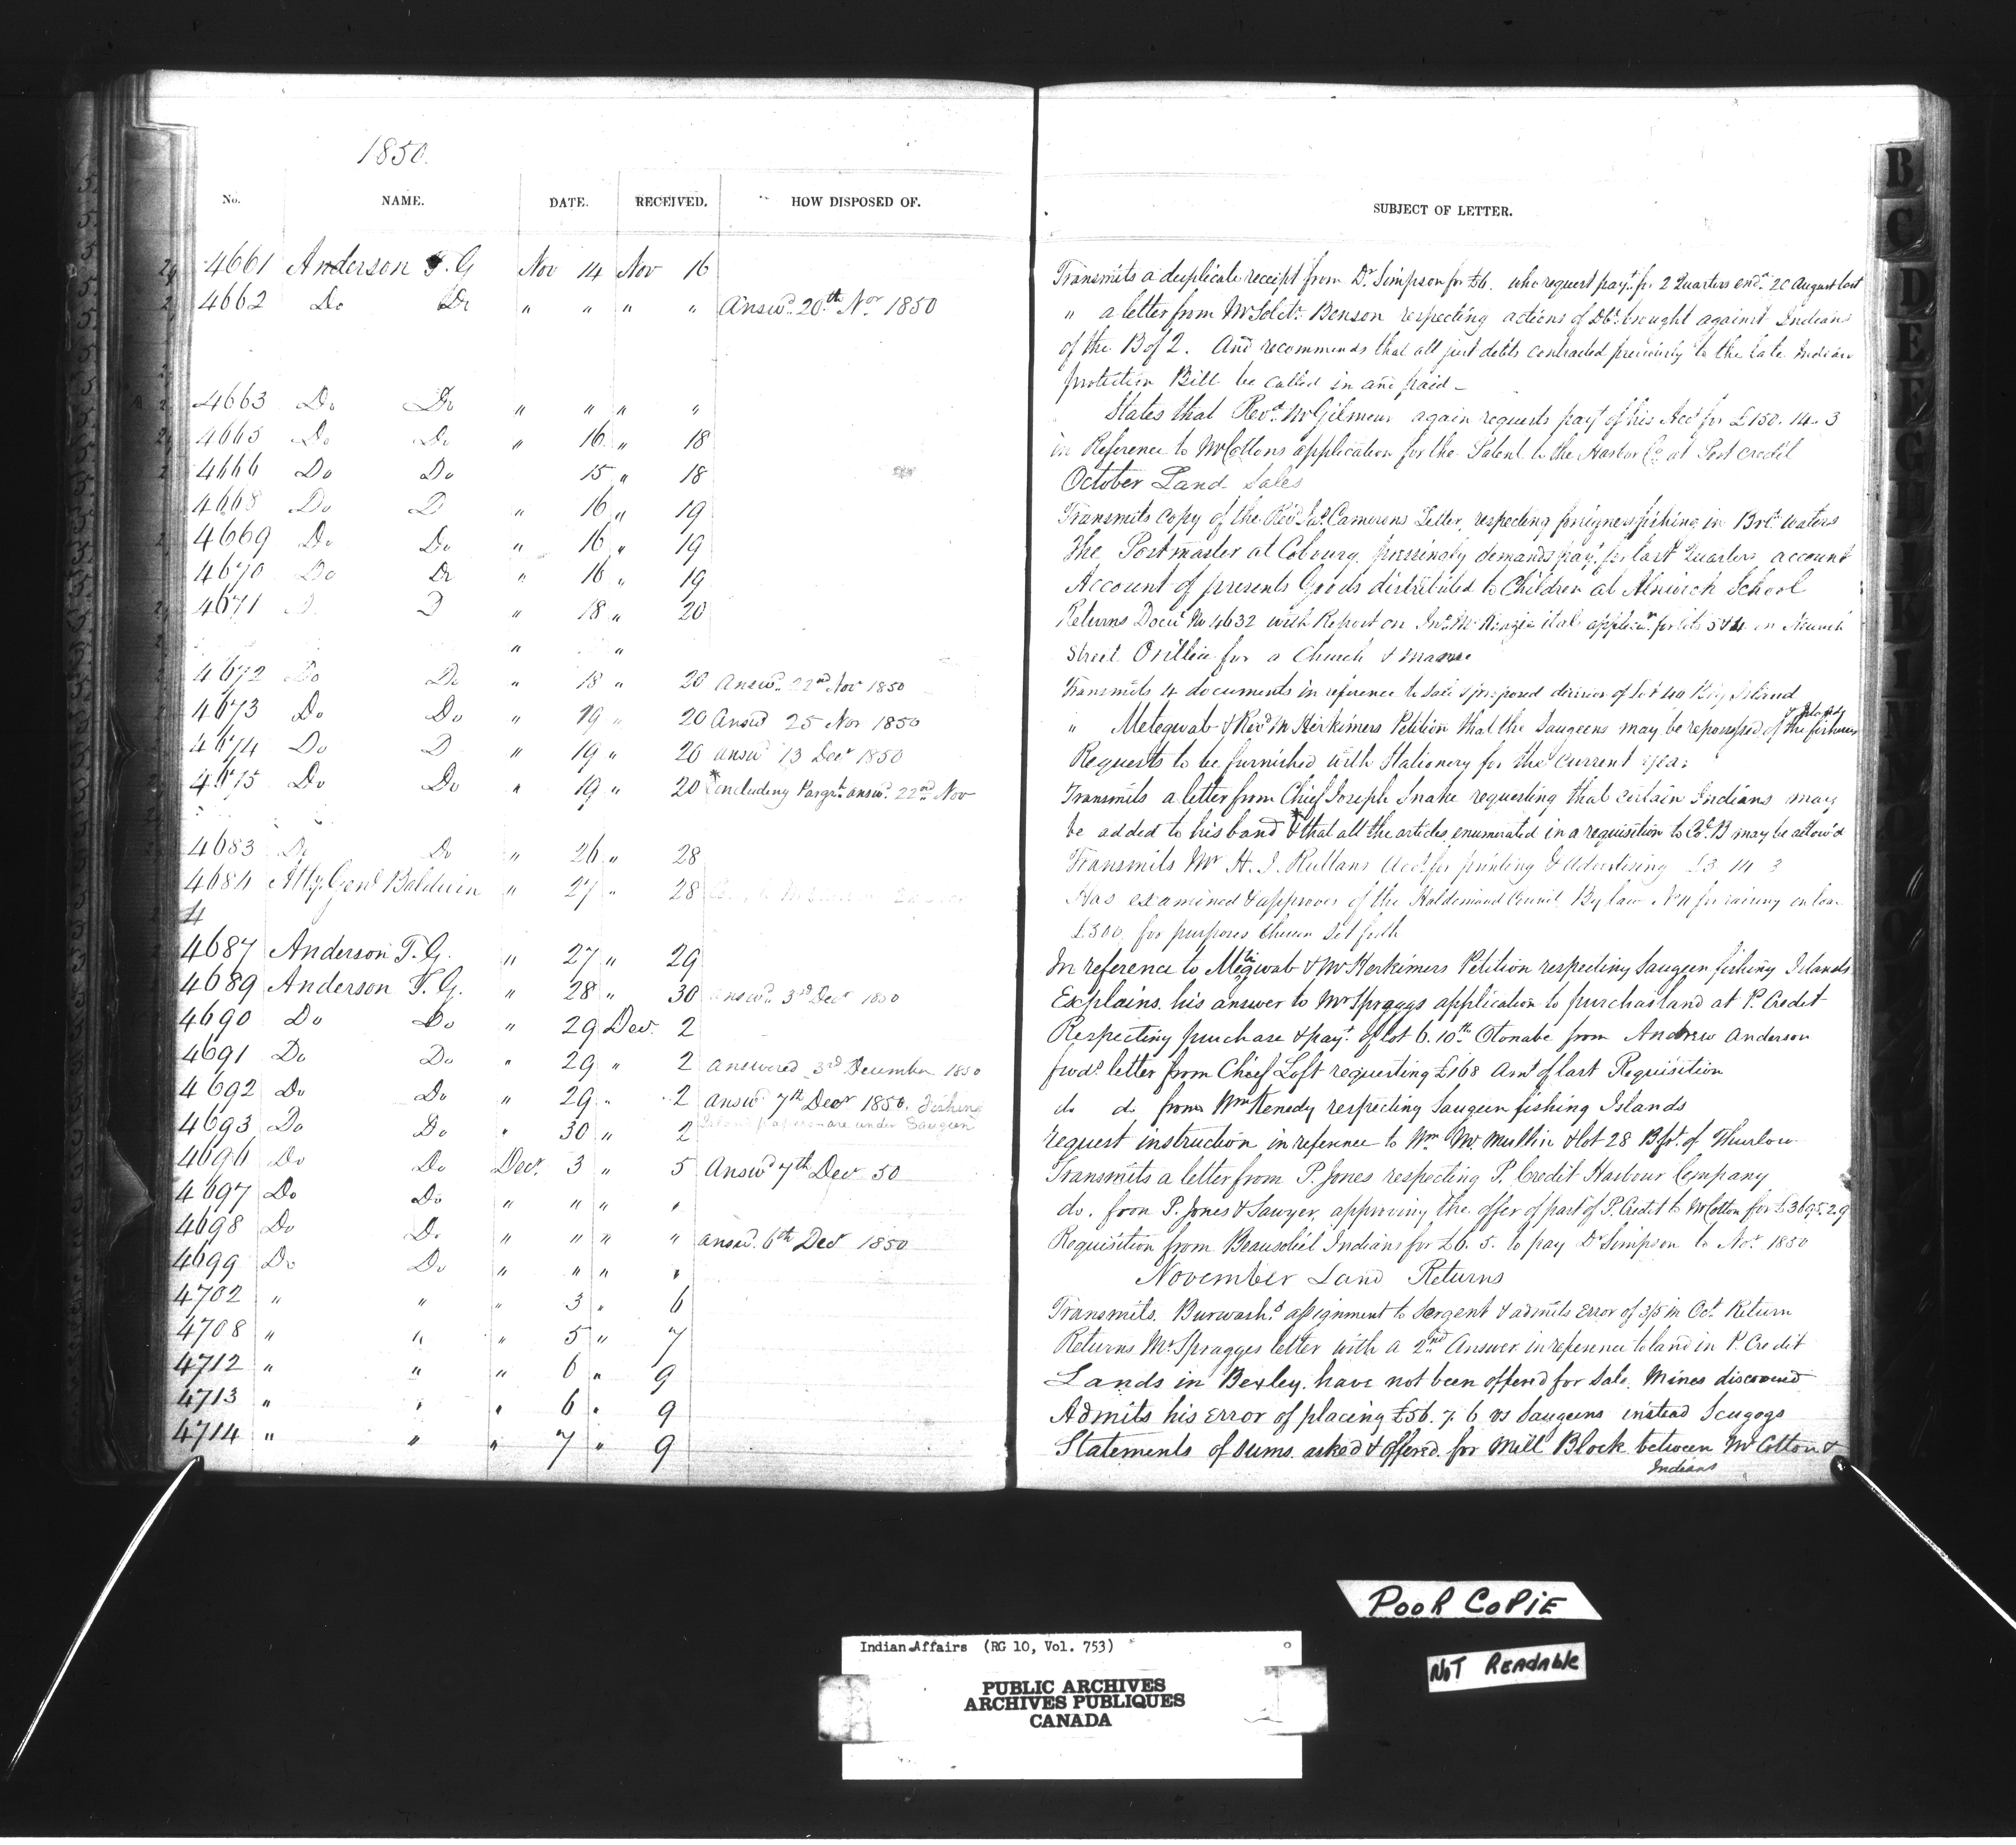 1850.
No. NAME. DATE. RECEIVED. HOW DISPOSED OF.
4661 Anderson T. G Nov 14 Nov 16
4662 Do Do " " " " Answd. 20th Nov 1850
4663 Do Do " " " "
4665 Do Do " 16 " 18
4666 Do Do 15 " 18
4668 Do D " 16 " 19
4669 Do Do " 16 " 19
4670 Do Do " 16 " 19
4671 D D " 18 " 20
" "
4672 Do Do " 18 " 20 Answd. 22nd Nov 1850
4673 Do Do " 19 " 20 Answd 25 Nov 1850
4674 Do D " 19 " 20 answd 13 Decr 1850
4675 Do Do " 19 " 20 * Concluding Pargrh. answd. 22nd Nov
4683 Do Do " 26 " 28
4684 Atty. Genl Baldwin " 27 " 28
4687 Anderson T. G. " 27 " 29
4689 Anderson T. G. " 28 " 30 answd. 3rd Decr 1850
4690 Do Do " 29 Dec. 2
4691 Do Do " 29 " 2 answered 3rd December 1850
4692 Do Do " 29 " 2 answd 7th Decr 1850. Fishing
Island papers are under Saugeen
4693 Do Do " 30 " 2
4696 Do Do Decr. 3 " 5 Answd 7th Dec 50
4697 Do Do " " " "
4698 Do Do " " " " answd. 6th Decr 1850
4699 Do Do " " " "
4702 " " " 3 " 6
4708 " " " 5 " 7
4712 " " " 6 " 9
4713 " " " 6 " 9
4714 " " " 7 " 9
SUBJECT OF LETTER.
Transmits a duplicate receipt from Dr. Simpson for £6. who request payt. for 2 Quarters end. 20 August last
" a letter from Mr Solctr. Benson respecting actions of Dbt. brought against Indians
of the B of 2. And recommends that all just debts contracted previously to the late Indian
protection Bill be called in and paid -
States that Revd. Mr Gilmour again requests payt of his Acct for £150. 14. 3
in Reference to Mr Cottons application for the Patent to the Harbor Co. at Port Credit
October Land Sales
Transmits copy of the Revd Jas. Camerons Letter, respecting foreigners fishing in Brit. waters
The Postmaster at Cobourg pressingly demands payt. for last Quarters account
Account of presents Goods distributed to Children at Alnwick School
Returns Docut No 4632 with Report on Jno. Mc Kinzie et al applicn. for lots 5 & 4 on
Street Orillia for a Church & manse
Transmits 4 documents in reference to Sale & proposed division of Lot 40 Big Island
" Metegwab & Revd Mr Herkimers Petition that the Saugeens may be repossessed of the fishing
Islands
Requests to be furnished with Stationery for the current year
Transmits a letter from Chief Joseph Snake requesting that certain Indians may
be added to his band * & that all the articles enumerated in a requisition to Col. B may be allow'd
Transmits Mr H. J. Ruttans Acct for printing & advertising £3 14 3
Has examined & approves of the Haldimand Council By law No 11 for raising on loan
£300, for purposes therein set forth
In reference to Metigwab & Mr Herkimers Petition respecting Saugeen fishing Islands
Explains his answer to Mr Spraggs application to purchas land at P. Credit
Respecting purchase & payt. of lot 6. 10th Otonabe from Andrew Anderson
fwds. letter from Chief Loft requesting £168 Amt of last Requisition
do do from Wm Kenedy respecting Saugeen fishing Islands
request instruction in reference to Wm Mc Mullin & lot 28 B frt. of Thurlow
Transmits a letter from P. Jones respecting P. Credit Harbour Company
do. from P. Jones & Sawyer, approving the offer of part of P. Credit to Mr Cotton for
Requisition from Beausoliel Indians for £6. 5. to pay Dr Simpson to Nov. 1850
November Land Returns
Transmits. Burwash's assignment to Sargent & admits error of 3/5 in Oct. Return
Returns Mr Spragges letter with a 2nd Answer in reference to land in P. Credit
Lands in Bexley. have not been offered for Sale. Mines discovered
Admits his error of placing £56. 7. 6 vs Saugeens instead Scugogs
Statements of Sums. asked & offered. for Mill Block between Mr Cotton &
Indians
B
C
D
E
F
G
H
I
K
POOR COPIE
NOT READABLE
Indian Affairs (RG 10, Vol. 753)
PUBLIC ARCHIVES
ARCHIVES PUBLIQUES
CANADA